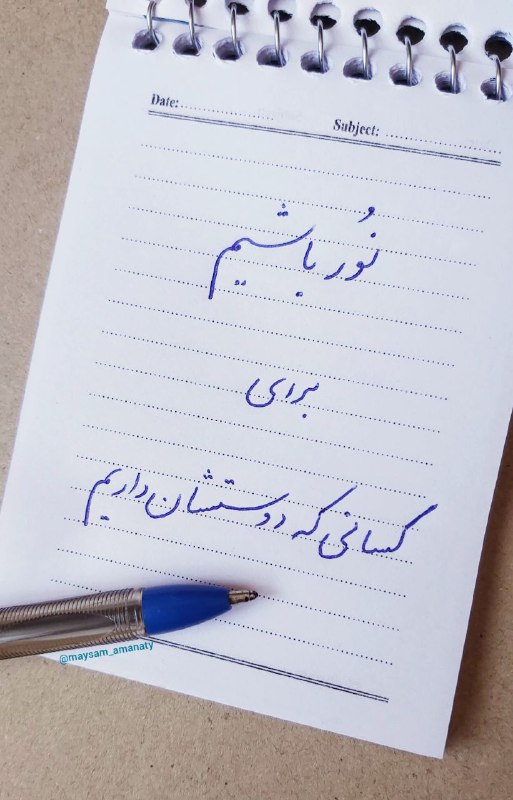 Date:
Subject:
نُور باشیم
برای
کسانی که دوستشان داریم
@maysam_amanaty